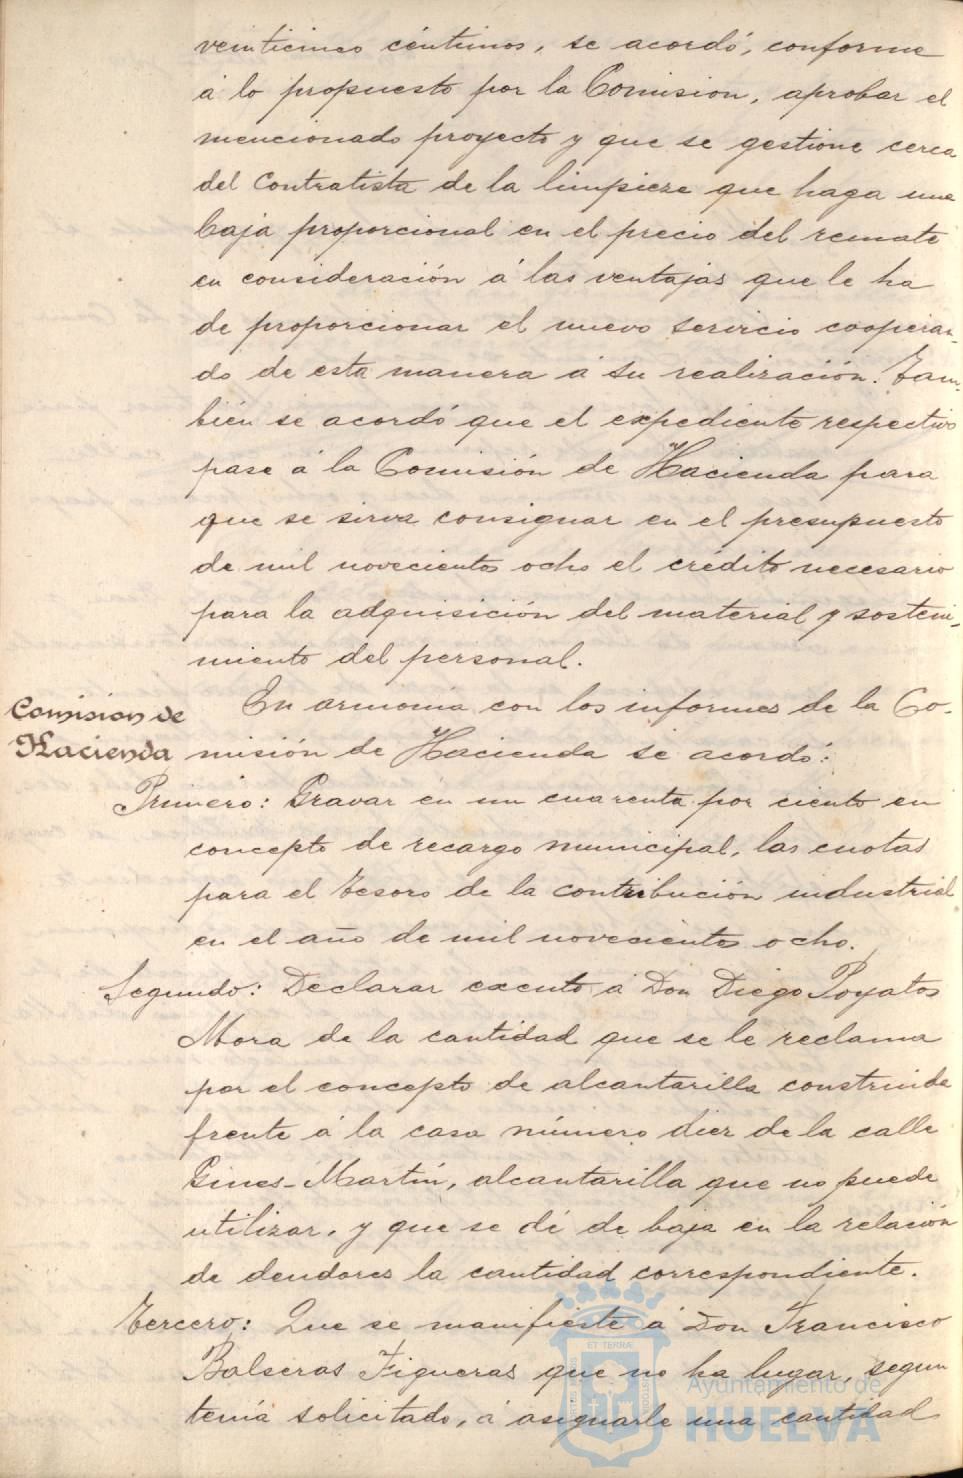 veinticinco céntimos, se acordó, conforme
á lo propuesto por la Comision, aprobar el
mencionado proyecto y que se gestione cerca
del contratista de la limpieze que haga una
baja proporcional en el precio del remate
en consideración á las ventajas que le ha
de proporcionar el nuevo servicio cooperan-
do de esta manera á su realización. Tam-
bién se acordó que el expediente respectivo
pase á la Comisión de Hacienda para
que se sirva consignar en el presupuesto
de mil novecientos ocho el crédito necesario
para la adquisición del material y sosteni-
miento del personal.
Comision de
Hacienda
En armonia con los informes de la Co-
misión de Hacienda se acordó:
Primero: Gravar en un cuarenta por ciento en
concepto de recargo municipal, las cuotas
para el Tesoro de la contribución industrial
en el año de mil novecientos ocho.
Segundo: Declarar exento á Don Diego Poyatos
Mora de la cantidad que se le reclama
por el concepto de alcantarilla construida
frente á la casa número diez de la calle
Gines-Martín, alcantarilla que no puede
utilizar, y que se dé de baja en la relación
de deudores la cantidad correspondiente.
Tercero: Que se manifieste á Don Francisco
Balseras Figueras que no ha lugar, segun
tenía solicitado, á asignarle una cantidad
Ayuntamiento de
HUELVA